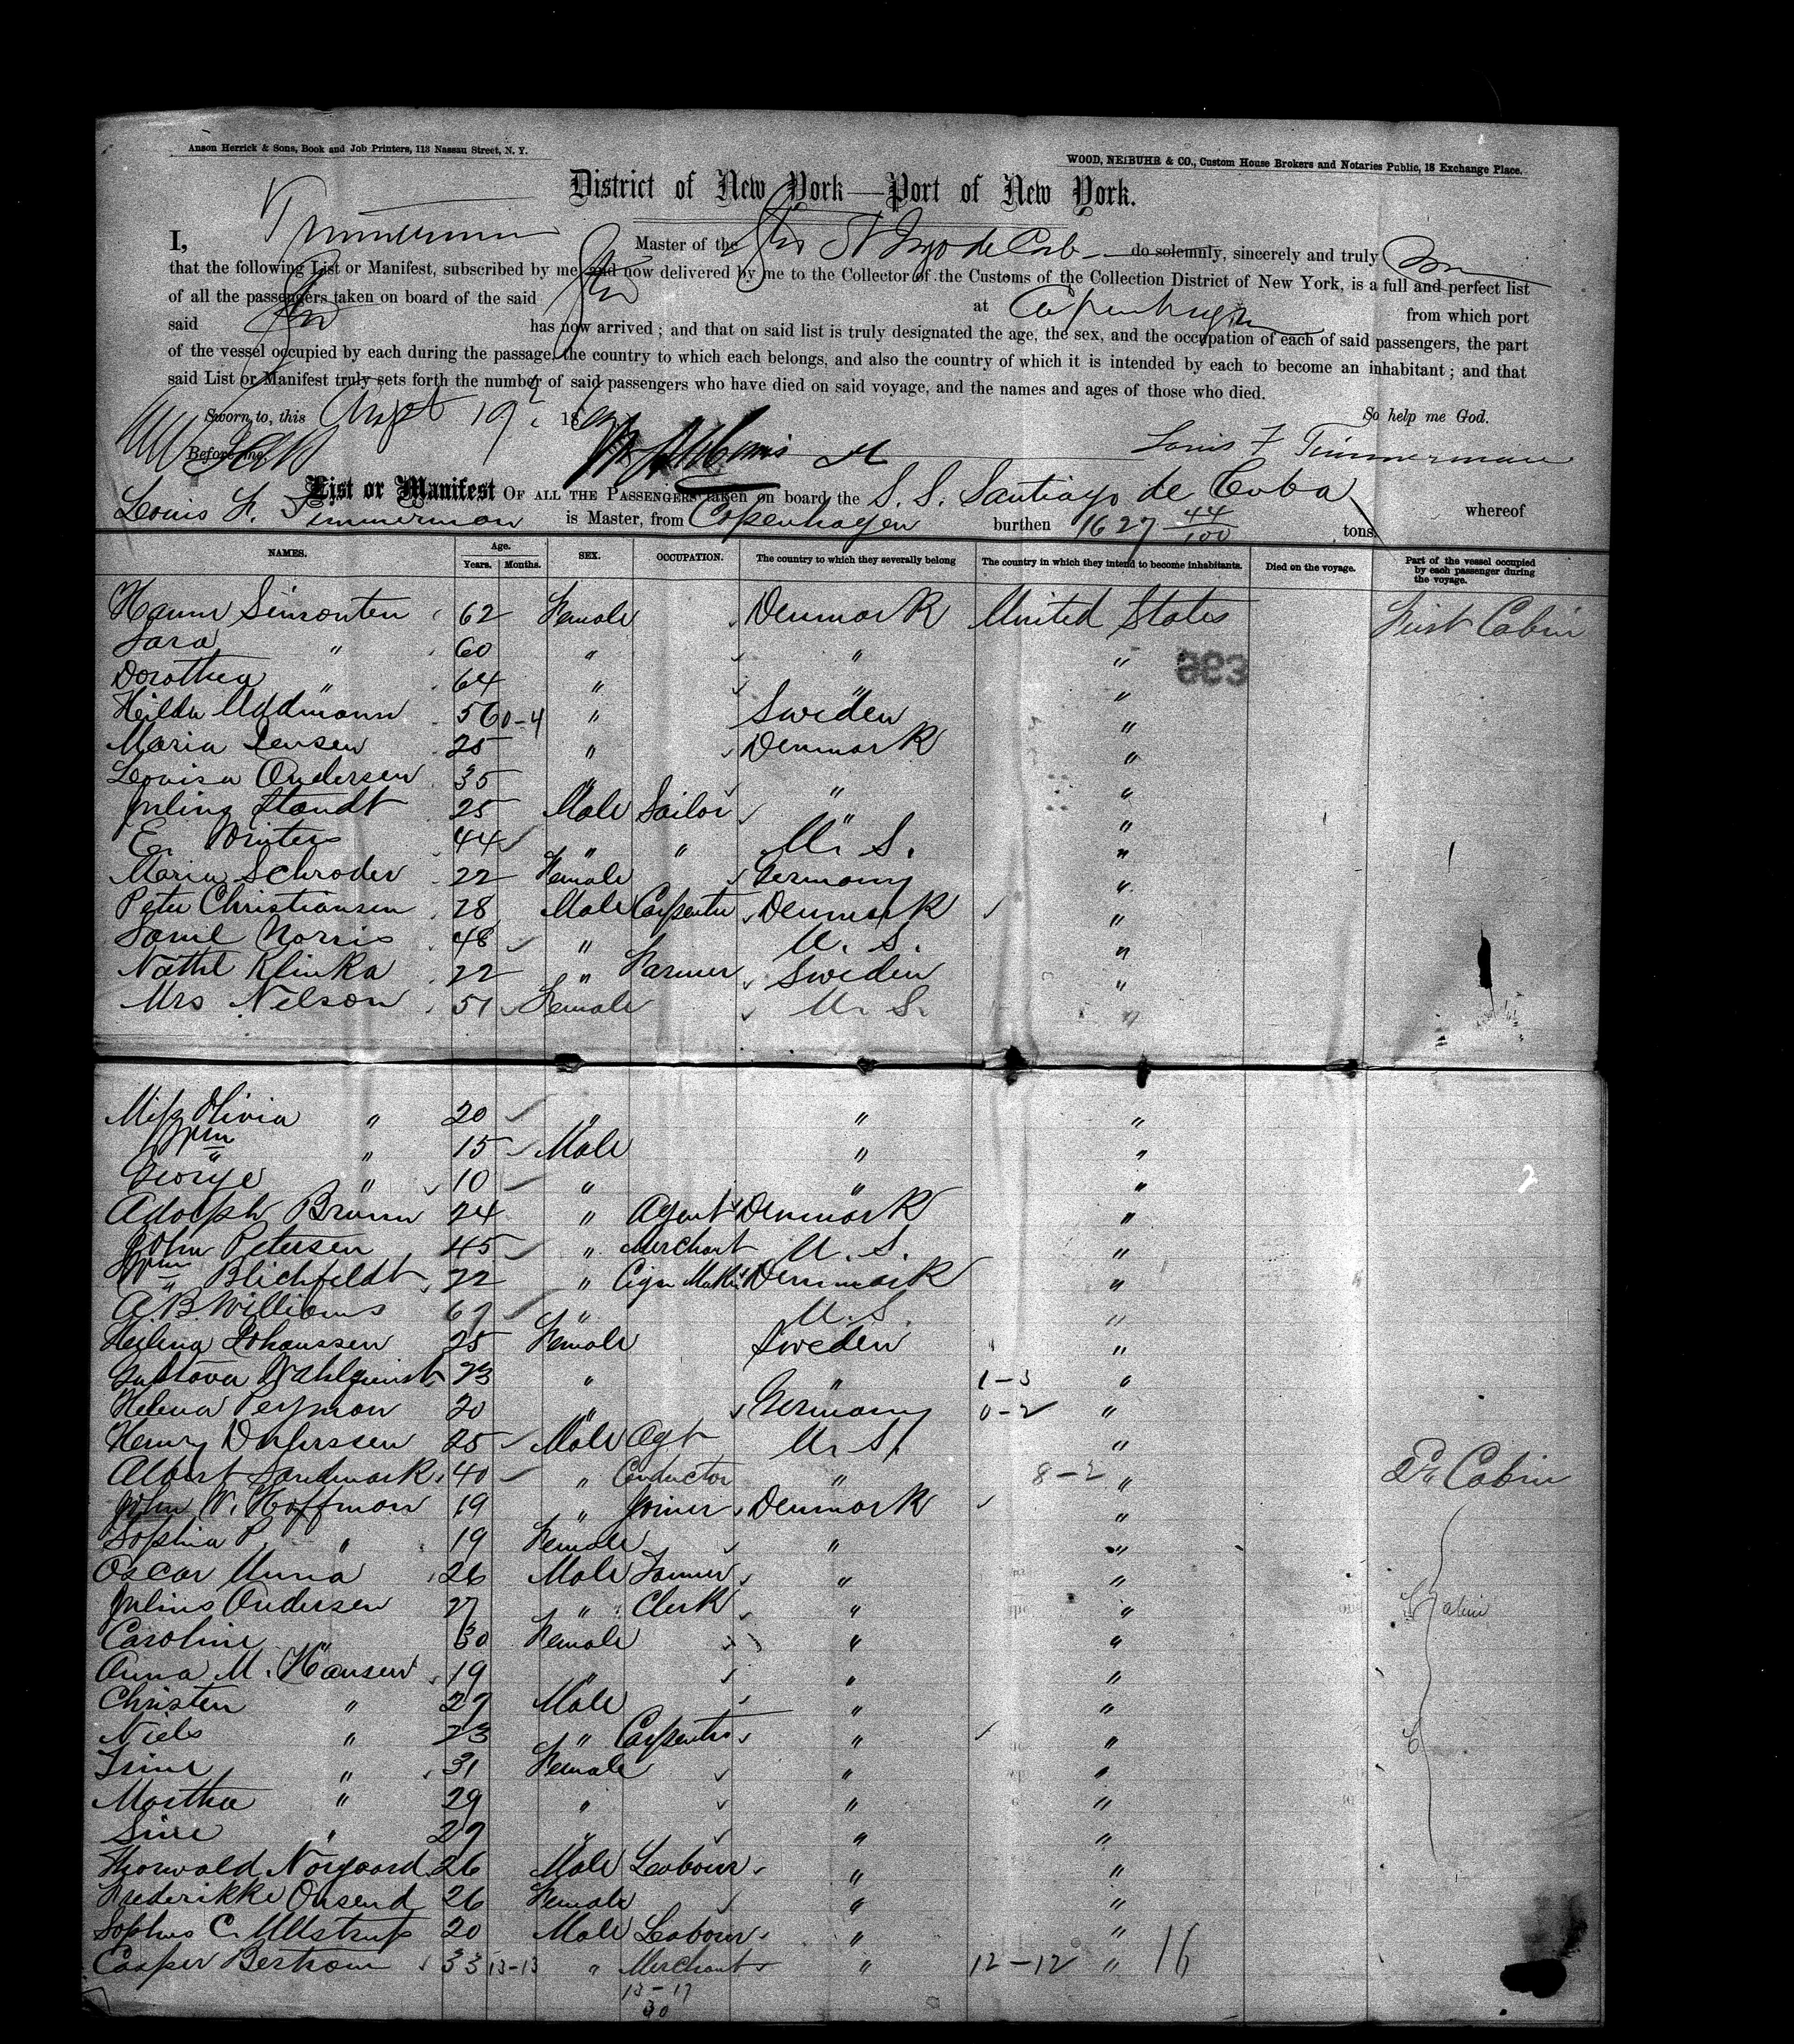 Anson Herrick & Sons, Book and Job Printers, 113 Nassau Street, N. Y.
WOOD, NEIBUHR & CO., Custom House Brokers and Notaries Public, 18 Exchange Place.
District of New York—Port of New York.
I, Timmerman Master of the Str St Jago de Cub do solemnly, sincerely and truly
that the following List or Manifest, subscribed by me, and now delivered by me to the Collector of the Customs of the Collection District of New York, is a full and perfect list
of all the passengers taken on board of the said Str at Copenhagen from which port
said Str has now arrived; and that on said list is truly designated the age, the sex, and the occupation of each of said passengers, the part
of the vessel occupied by each during the passage, the country to which each belongs, and also the country of which it is intended by each to become an inhabitant; and that
said List or Manifest truly sets forth the number of said passengers who have died on said voyage, and the names and ages of those who died.
Sworn to, this 19 18 So help me God.
Before me, Louis F Timmerman
List or Manifest OF ALL THE PASSENGERS taken on board the S. S. Santiago de Cuba whereof
Louis F. Timmerman is Master, from Copenhagen burthen 1627 44/100 tons.
NAMES. Age. Years. Months. SEX. OCCUPATION. The country to which they severally belong The country in which they intend to become inhabitants. Died on the voyage. Part of the vessel occupied by each passenger during the voyage.
Hanne Simonten 62 Female Denmark United States First Cabin
Sara " 60 " " "
Dorothea " 64 " " "
Hilda Uddmann 56 0-4 " Sweden "
Maria Jensen 25 " Denmark "
Lovisa Andersen 35 " " "
Julius Standt 25 Male Sailor " "
E. Winters 44 " " U. S. "
Maria Schroder 22 Female Germany "
Peter Christiansen 28 Male Carpenter Denmark "
Saml Norris 48 " U. S. "
Nathl Klinka 22 " Farmer Sweden "
Mrs Nelson 51 Female U. S. "
Miss Olivia " 20 " " "
Wm " 15 Male " "
George " 10 " " "
Adolph Brunn 24 " Agent Denmark "
John Petersen 45 " Merchant U. S. "
Wm Blichfeldt 22 " Cigar Maker Denmark "
A. B. Williams 67 " U. S. "
Johanssen 25 Female Sweden "
Gustava Dahlquist 23 " " 1-3 "
Helena Peyman 20 " Germany 0-2 "
Henry 25 Male Agt U. S. "
Albert Sandmark 40 " Conductor " 8-2 " 2d Cabin
John W. Hoffman 19 " Joiner Denmark "
Sophia P. " 19 Female " "
Oscar Unna 26 Male " "
Julius Andersen 27 " Clerk " " Cabin
Caroline " 30 Female " "
Anna M. Hansen 19 " " "
Christen " 27 Male " "
Niels " 23 " Carpenter " "
Trine " 31 Female " "
Martha " 29 " " "
Sine " 27 " " "
Thorwald Norgaard 26 Male Labour " "
Frederikke 26 Female " "
Sophus C. Ullstrup 20 Male Labour " "
Casper Bertram 33 13-13 " Merchant " 12-12 " 16
13-17
30